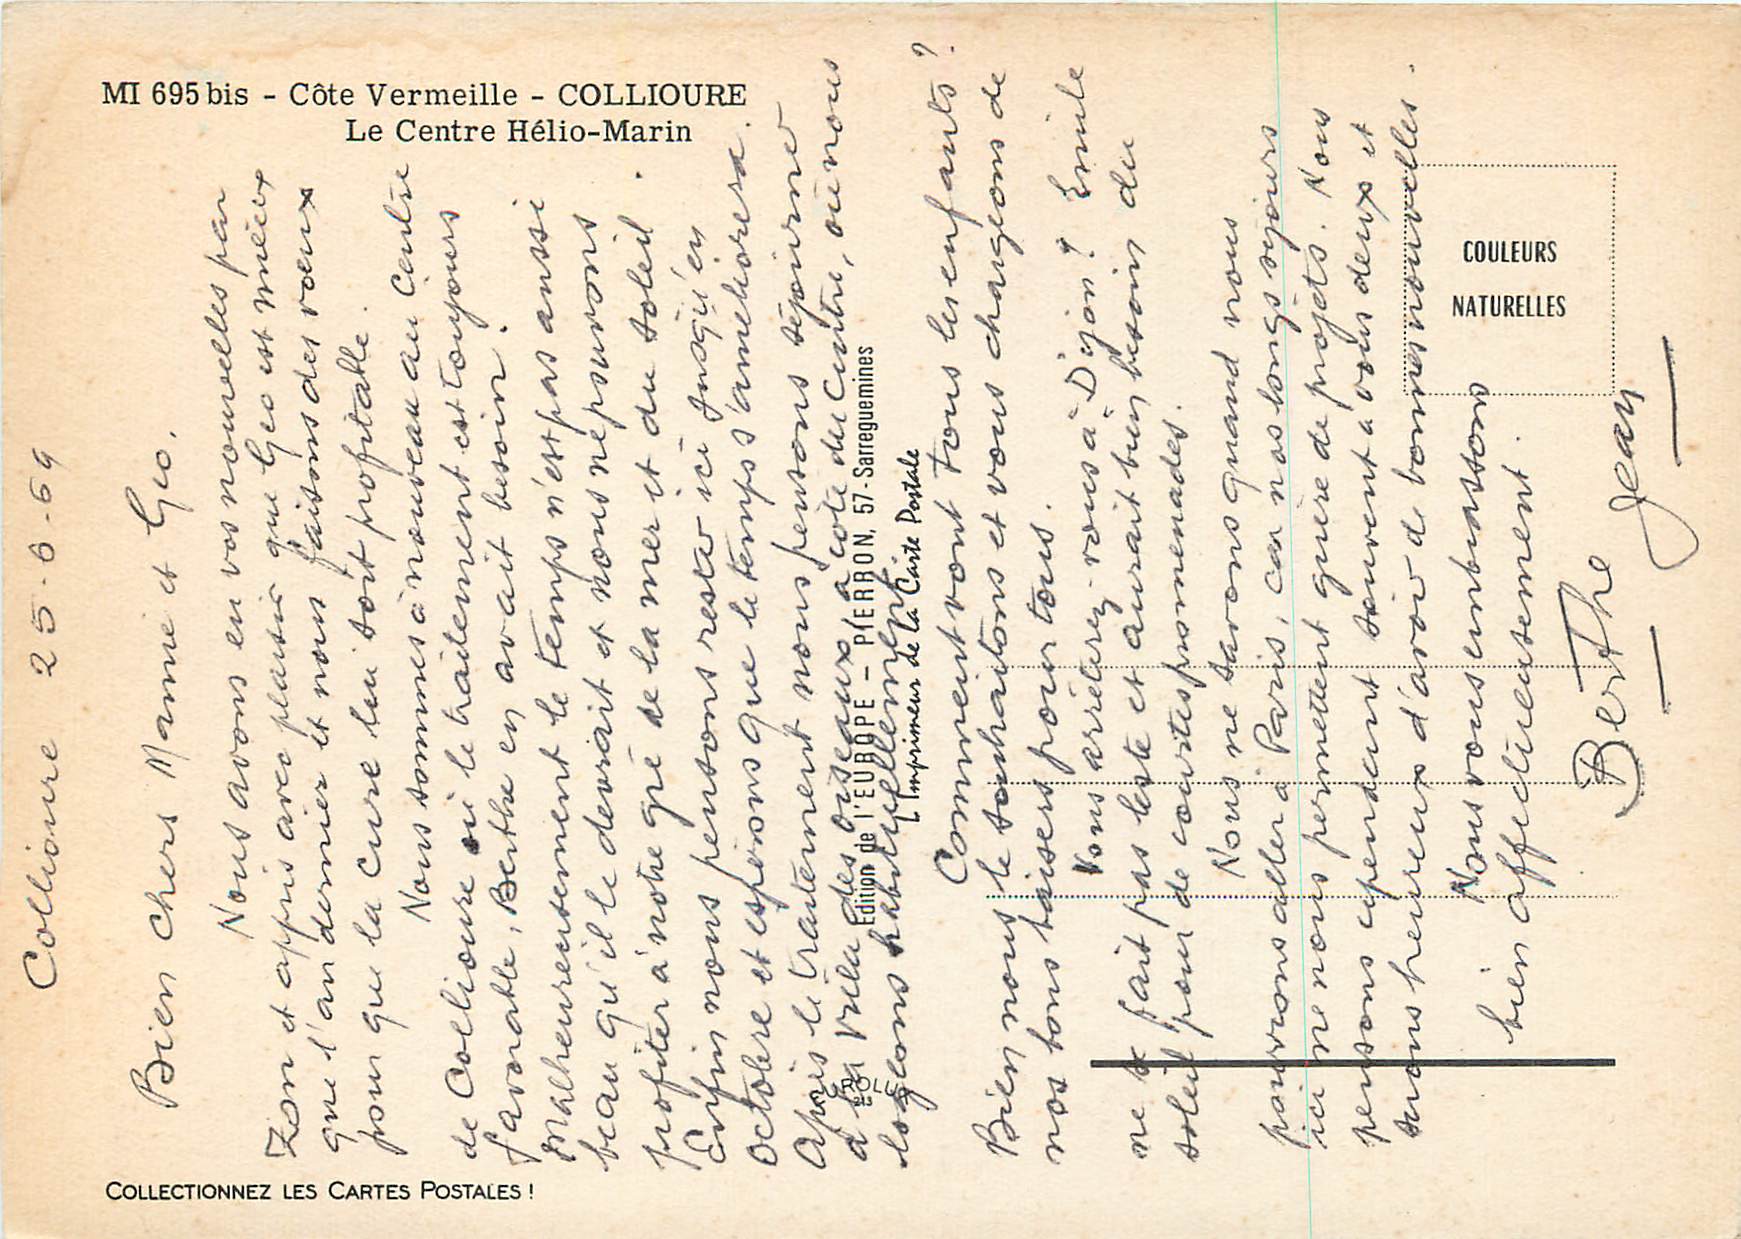 MI 695 bis - Côte Vermeille - COLLIOURE
Le Centre Hélio-Marin
Collioure 25-6-69
Bien chers Mamie et Géo.
Nous avons eu vos nouvelles par
Zon et appris avec plaisir que Géo est mieux
que l'an dernier et nous faisons des vœux
pour que la cure lui soit profitable.
Nous sommes à nouveau au Centre
de Collioure où le traitement est toujours
favorable, Berthe en avait besoin.
Malheureusement le temps n'est pas aussi
beau qu'il le devrait et nous ne pouvons
profiter à notre gré de la mer et du soleil.
Enfin nous pensons rester ici jusqu'en
Octobre et espérons que le temps s'améliorera.
Après le traitement nous pensons séjourner
à la villa des oiseaux à côté du Centre, où nous
logeons habituellement.
Comment vont tous les enfants ?
Bien nous le souhaitons et vous chargeons de
nos bons baisers pour tous.
Vous arrêterez-vous à Dijon ? Emile
ne se fait pas leste et aurait bien besoin du
soleil pour de courtes promenades.
Nous ne savons quand nous
pourrions aller à Paris, car nos longs séjours
ici ne nous permettent guère de projets. Nous
pensons cependant souvent à vous deux et
serons heureux d'avoir de bonnes nouvelles.
Nous vous embrassons
bien affectueusement.
Berthe Jean
COULEURS
NATURELLES
Edition de l'EUROPE - PIERRON, 57-Sarreguemines
L'Imprimeur de la Carte Postale
COLLECTIONNEZ LES CARTES POSTALES !